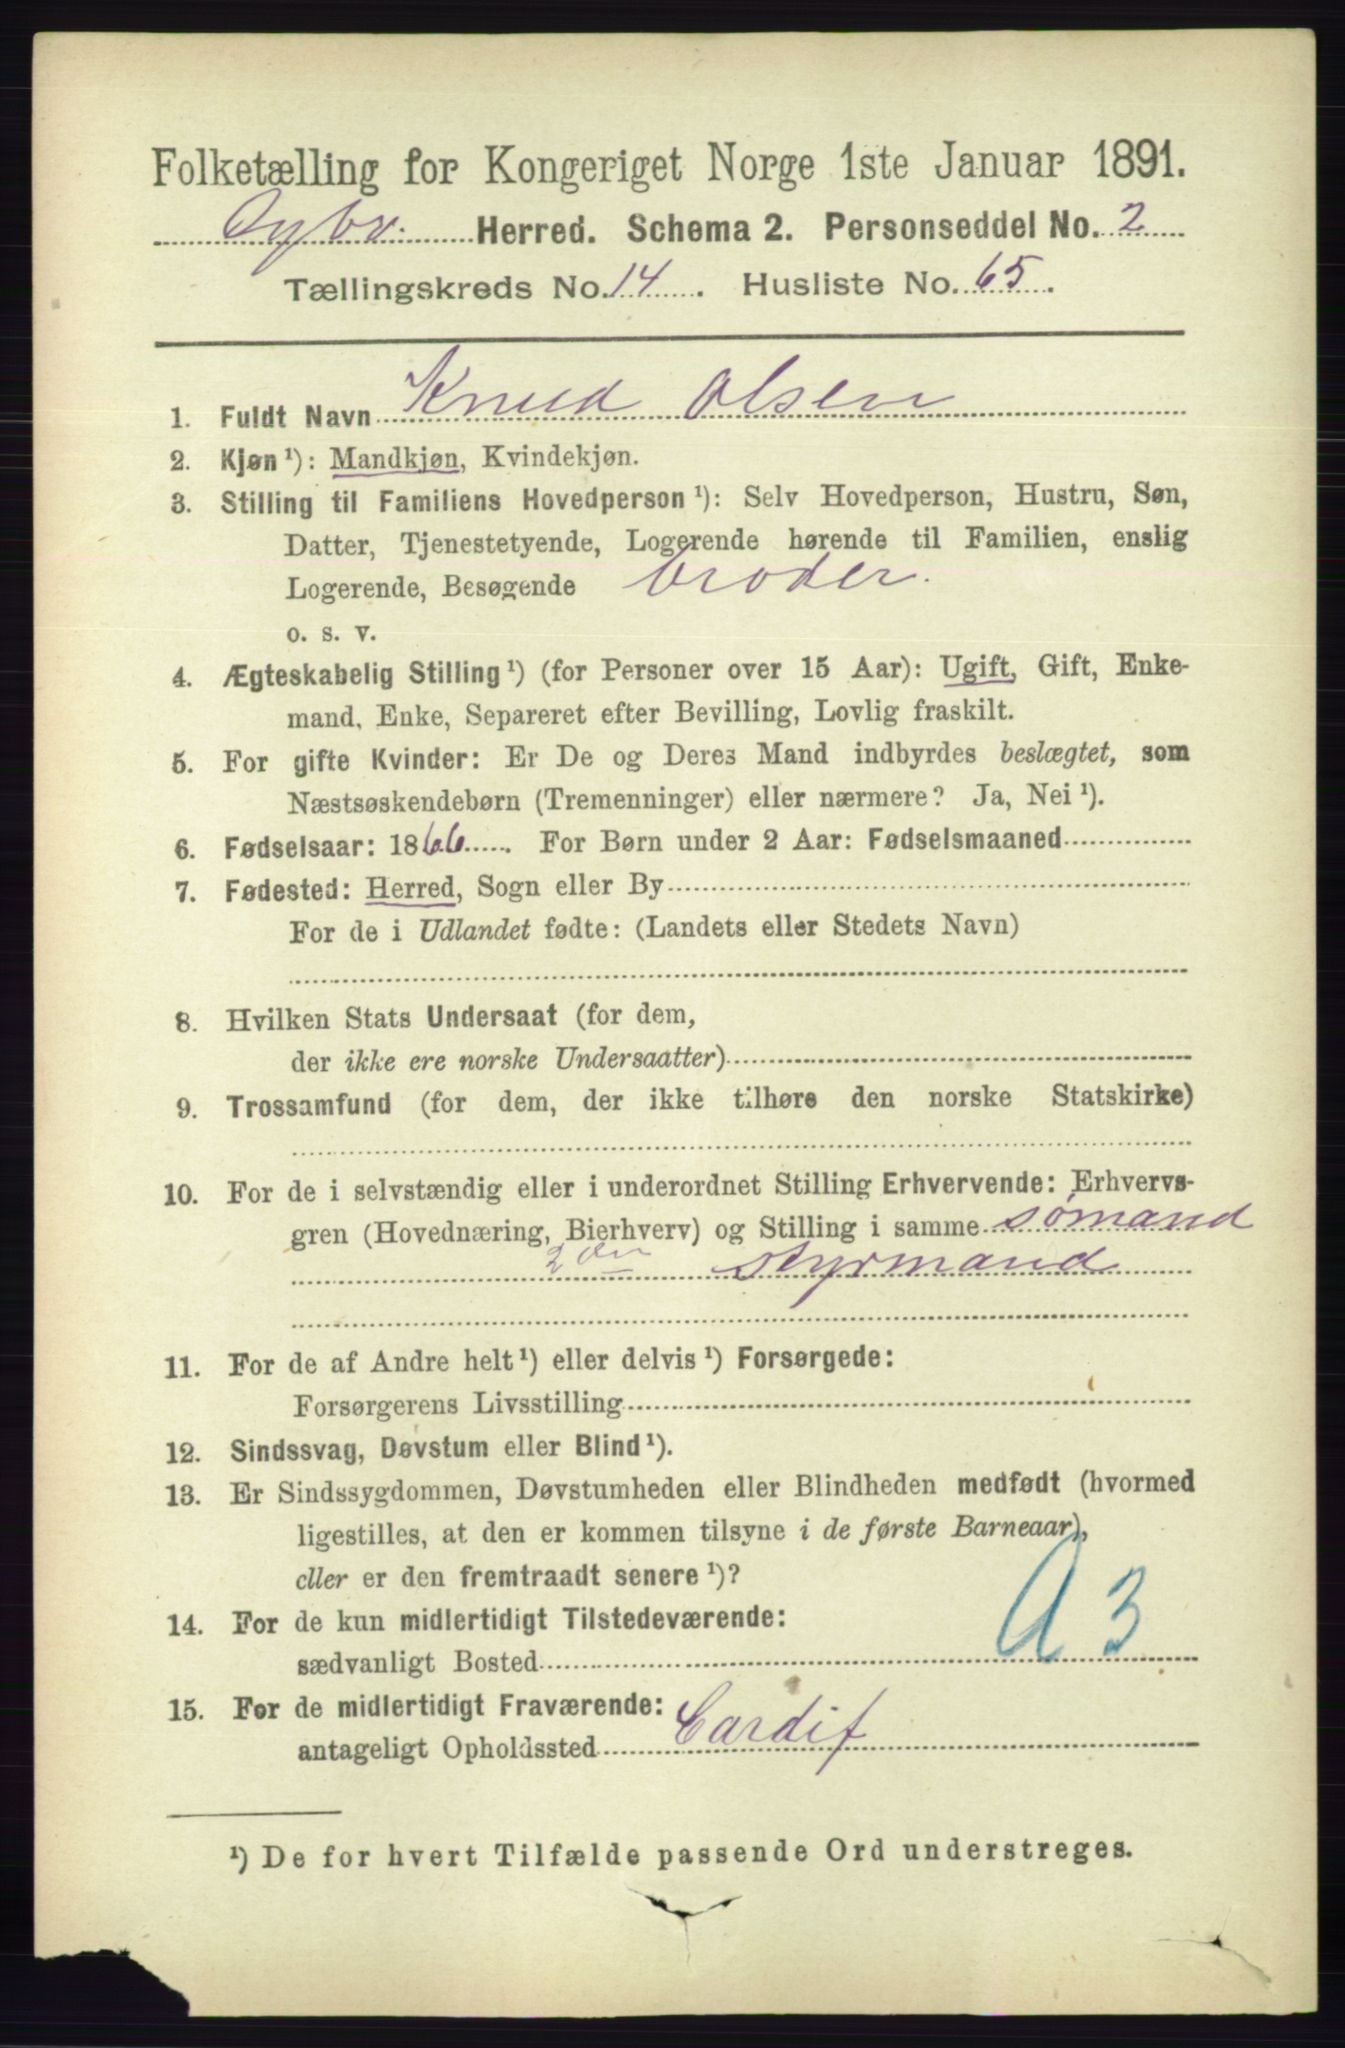 Folketælling for Kongeriget Norge 1ste Januar 1891.
Dybv. Herred. Schema 2. Personseddel No. 2
Tællingskreds No. 14. Husliste No. 65.
1. Fuldt Navn Knud Olsen
2. Kjøn ¹): Mandkjøn, Kvindekjøn.
3. Stilling til Familiens Hovedperson ¹): Selv Hovedperson, Hustru, Søn,
Datter, Tjenestetyende, Logerende hørende til Familien, enslig
Logerende, Besøgende broder.
o. s. v.
4. Ægteskabelig Stilling ¹) (for Personer over 15 Aar): Ugift, Gift, Enke-
mand, Enke, Separeret efter Bevilling, Lovlig fraskilt.
5. For gifte Kvinder: Er De og Deres Mand indbyrdes beslægtet, som
Næstsøskendebørn (Tremenninger) eller nærmere? Ja, Nei ¹).
6. Fødselsaar: 1866. For Børn under 2 Aar: Fødselsmaaned
7. Fødested: Herred, Sogn eller By
For de i Udlandet fødte: (Landets eller Stedets Navn)
8. Hvilken Stats Undersaat (for dem,
der ikke ere norske Undersaatter)
9. Trossamfund (for dem, der ikke tilhøre den norske Statskirke)
10. For de i selvstændig eller i underordnet Stilling Erhvervende: Erhvervs-
gren (Hovednæring, Bierhverv) og Stilling i samme sømand
2den styrmand
11. For de af Andre helt ¹) eller delvis ¹) Forsørgede:
Forsørgerens Livsstilling
12. Sindssvag, Døvstum eller Blind ¹).
13. Er Sindssygdommen, Døvstumheden eller Blindheden medfødt (hvormed
ligestilles, at den er kommen tilsyne i de første Barneaar),
eller er den fremtraadt senere ¹)?
A 3
14. For de kun midlertidigt Tilstedeværende:
sædvanligt Bosted
15. For de midlertidigt Fraværende:
antageligt Opholdssted Cardif
¹) De for hvert Tilfælde passende Ord understreges.